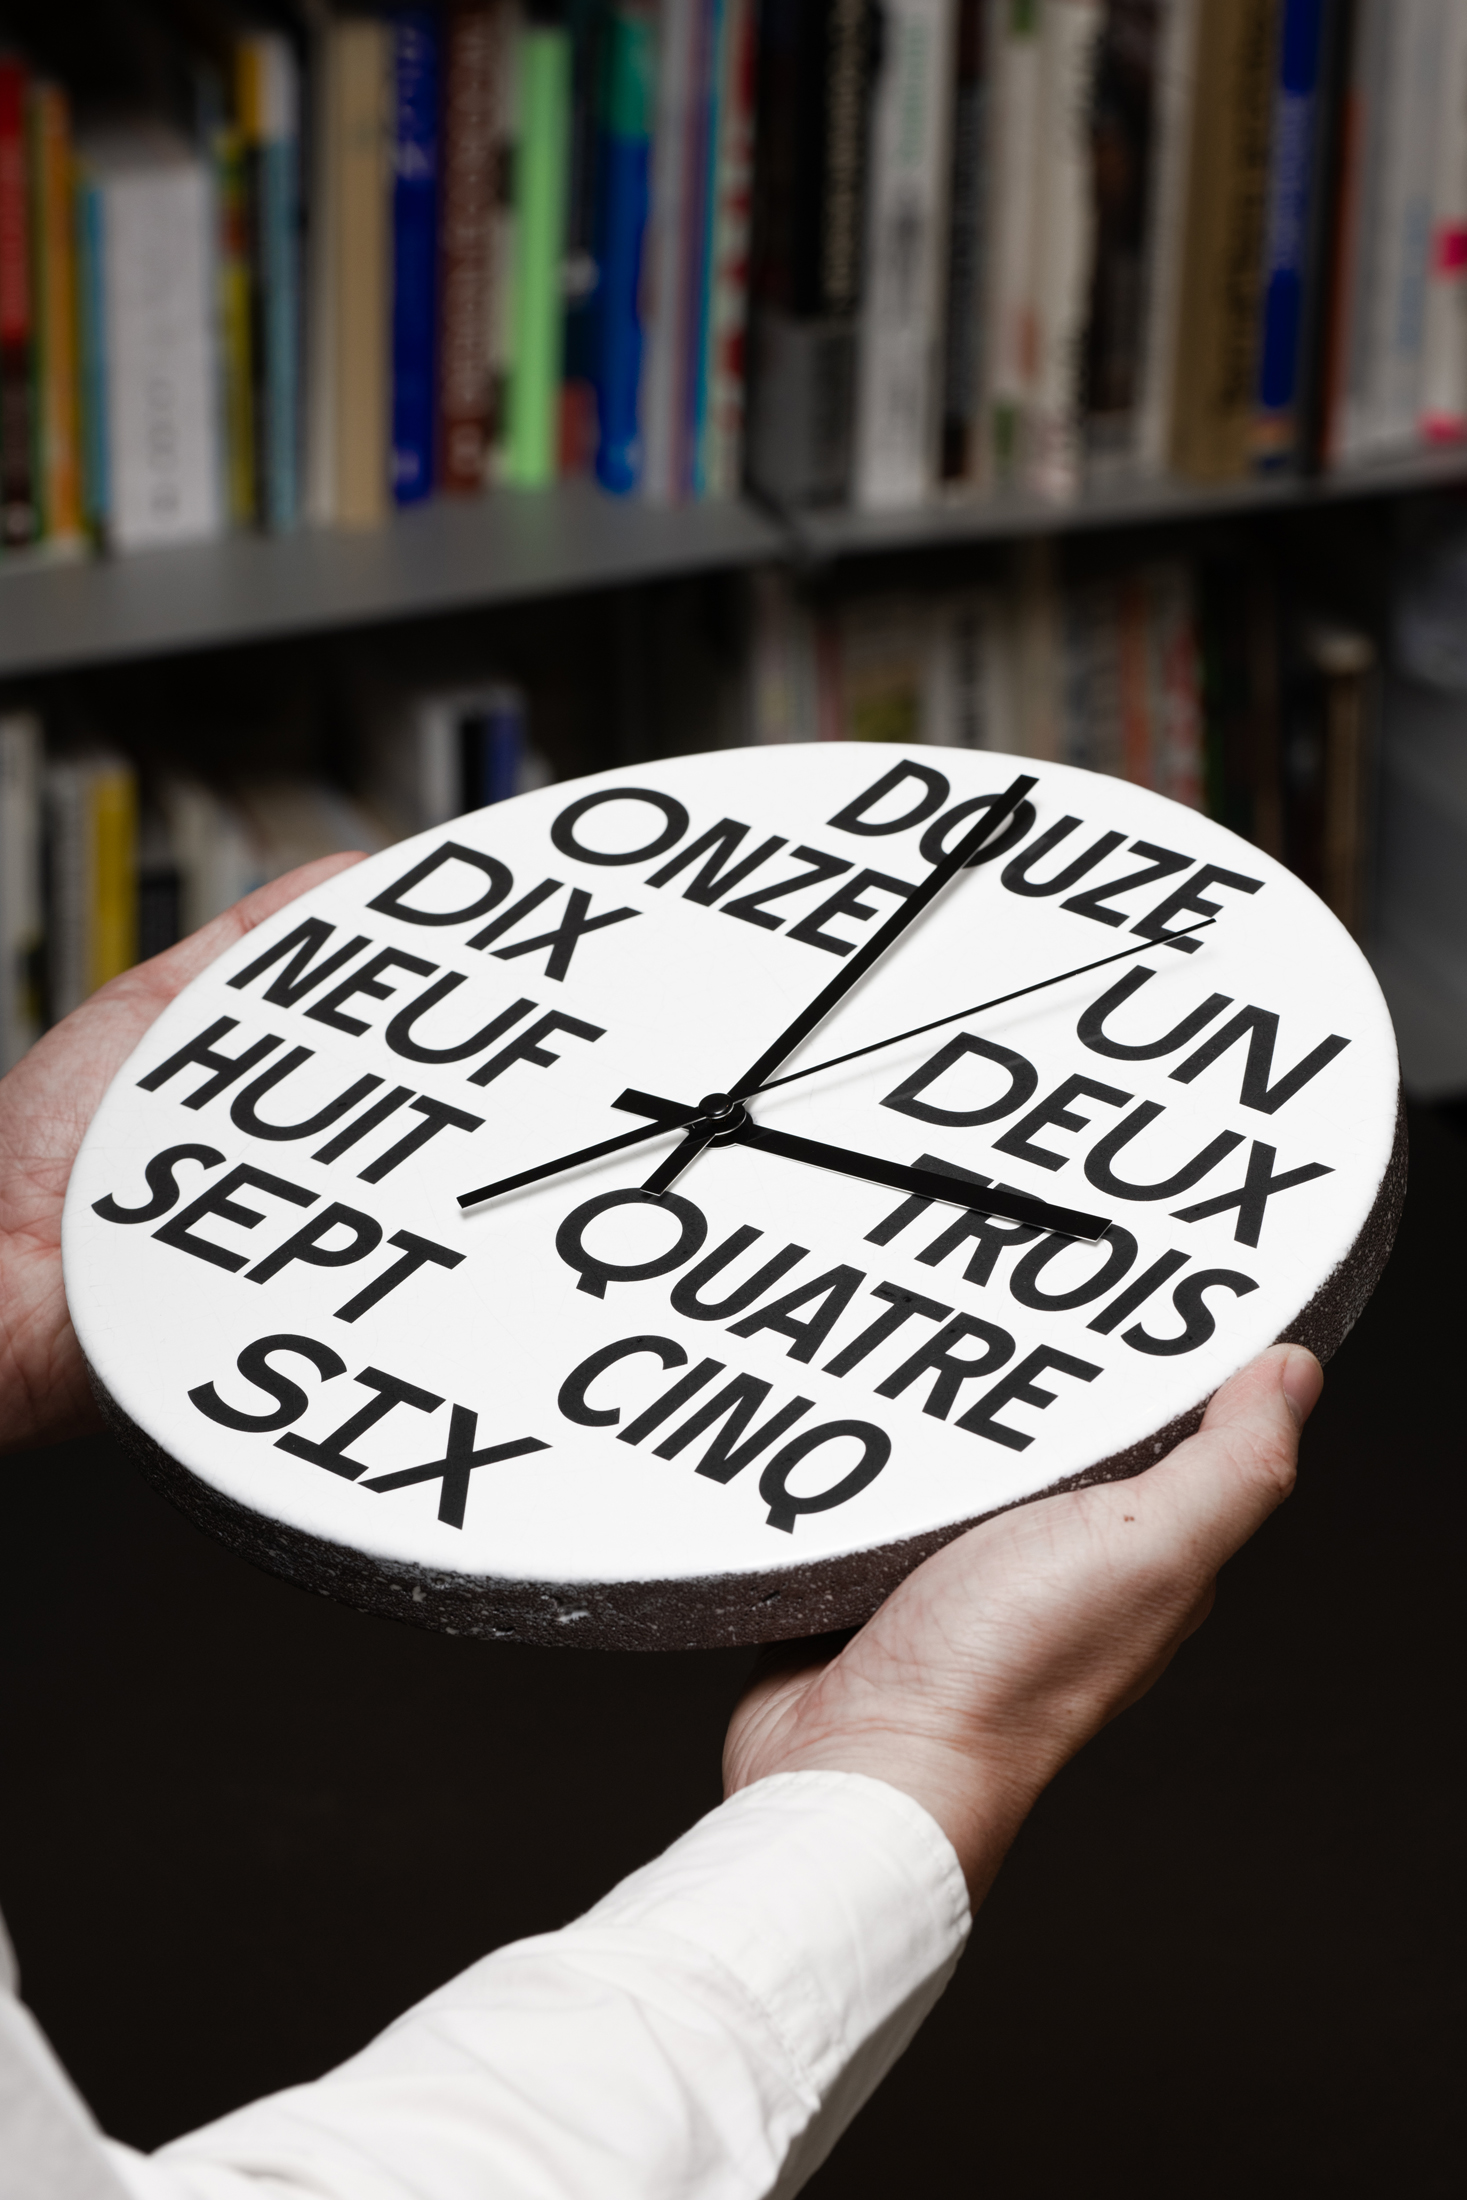 DOUZE
UN
DEUX
TROIS
QUATRE
CINQ
SIX
SEPT
HUIT
NEUF
DIX
ONZE